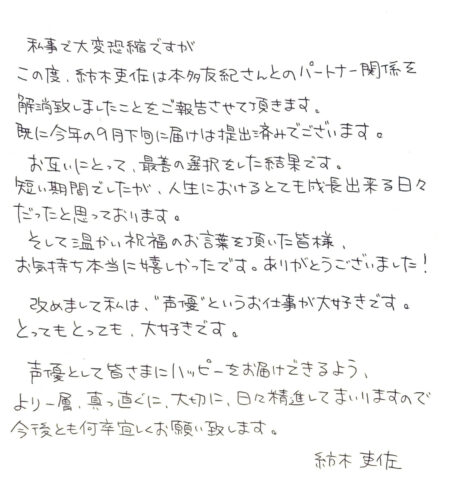 私事で大変恐縮ですが
この度、紡木吏佐は本多友紀さんとのパートナー関係を
解消致しましたことをご報告させて頂きます。
既に今年の9月下旬に届けは提出済みでございます。
お互いにとって、最善の選択をした結果です。
短い期間でしたが、人生におけるとても成長出来る日々
だったと思っております。
そして温かい祝福のお言葉を頂いた皆様、
お気持ち本当に嬉しかったです。ありがとうございました!
改めまして私は、"声優"というお仕事が大好きです。
とってもとっても、大好きです。
声優として皆さまにハッピーをお届けできるよう、
より一層、真っ直ぐに、大切に、日々精進してまいりますので
今後とも何卒宜しくお願い致します。
紡木吏佐